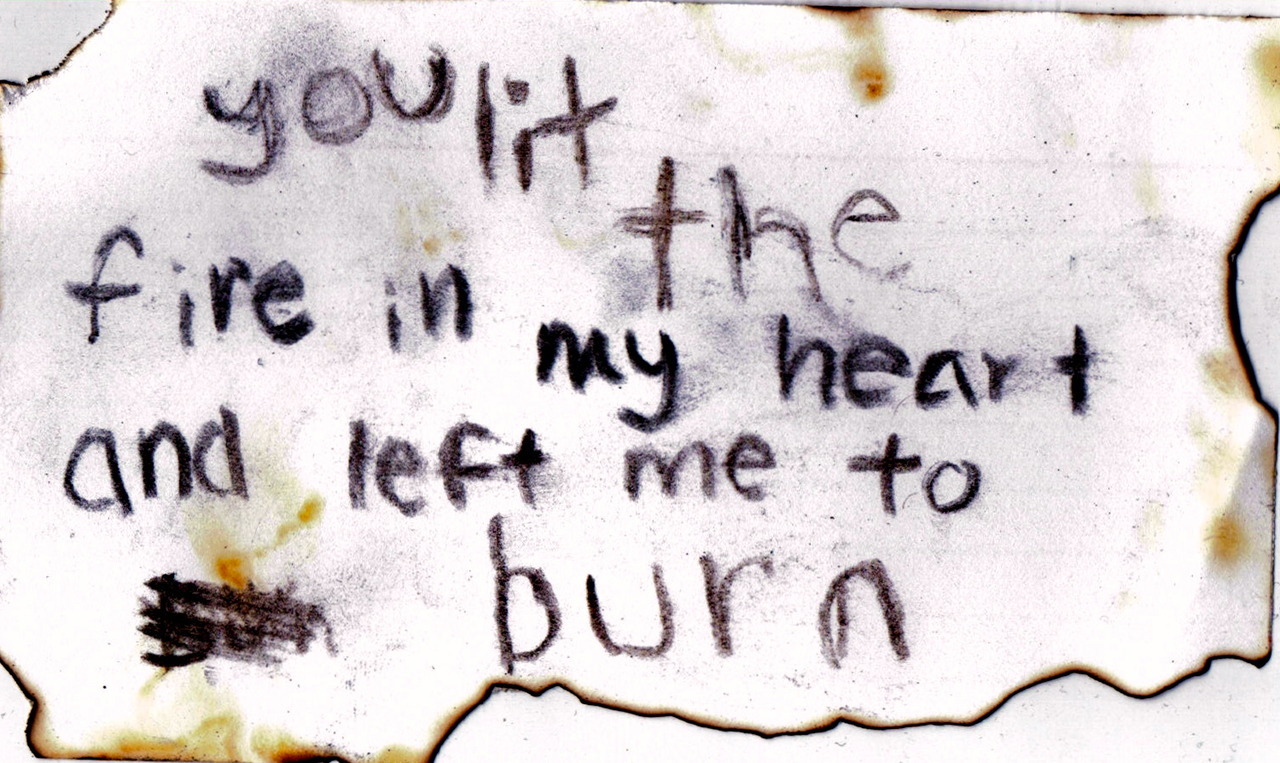 you lit
the
fire in
my heart
and left me to
burn